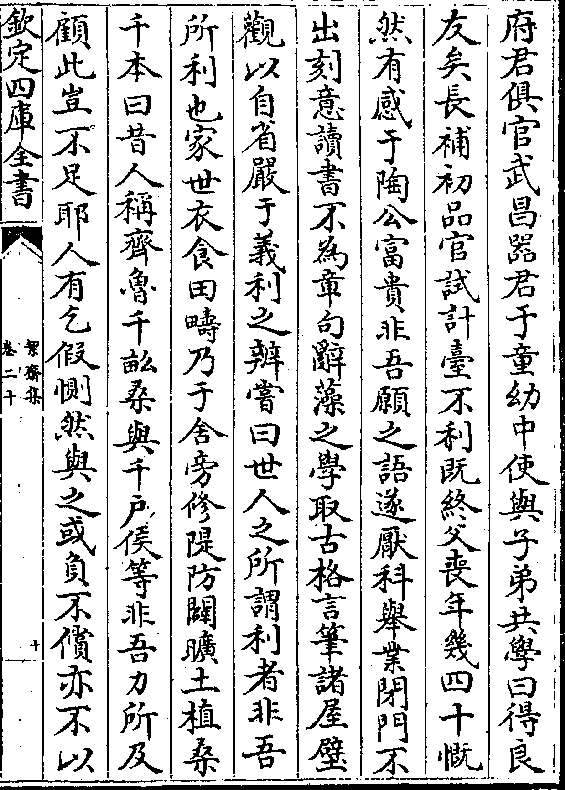 府君俱官武昌器君于童幼中使與子弟共學曰得良
友矣長補初品官試計臺不利既終父喪年幾四十慨
然有感于陶公富貴非吾願之語遂厭科舉業閉門不
出刻意讀書不為章句辭藻之學取古格言筆諸屋壁
觀以自省嚴于義利之辨嘗曰世人之所謂利者非吾
所利也家世衣食田疇乃于舍旁修隄防闢曠土植桑
千本曰昔人稱齊魯千畝桑與千戶侯等非吾力所及
顧此豈不足耶人有乞假惻然與之或負不償亦不以
欽定四庫全書
絜齋集
卷二十
十